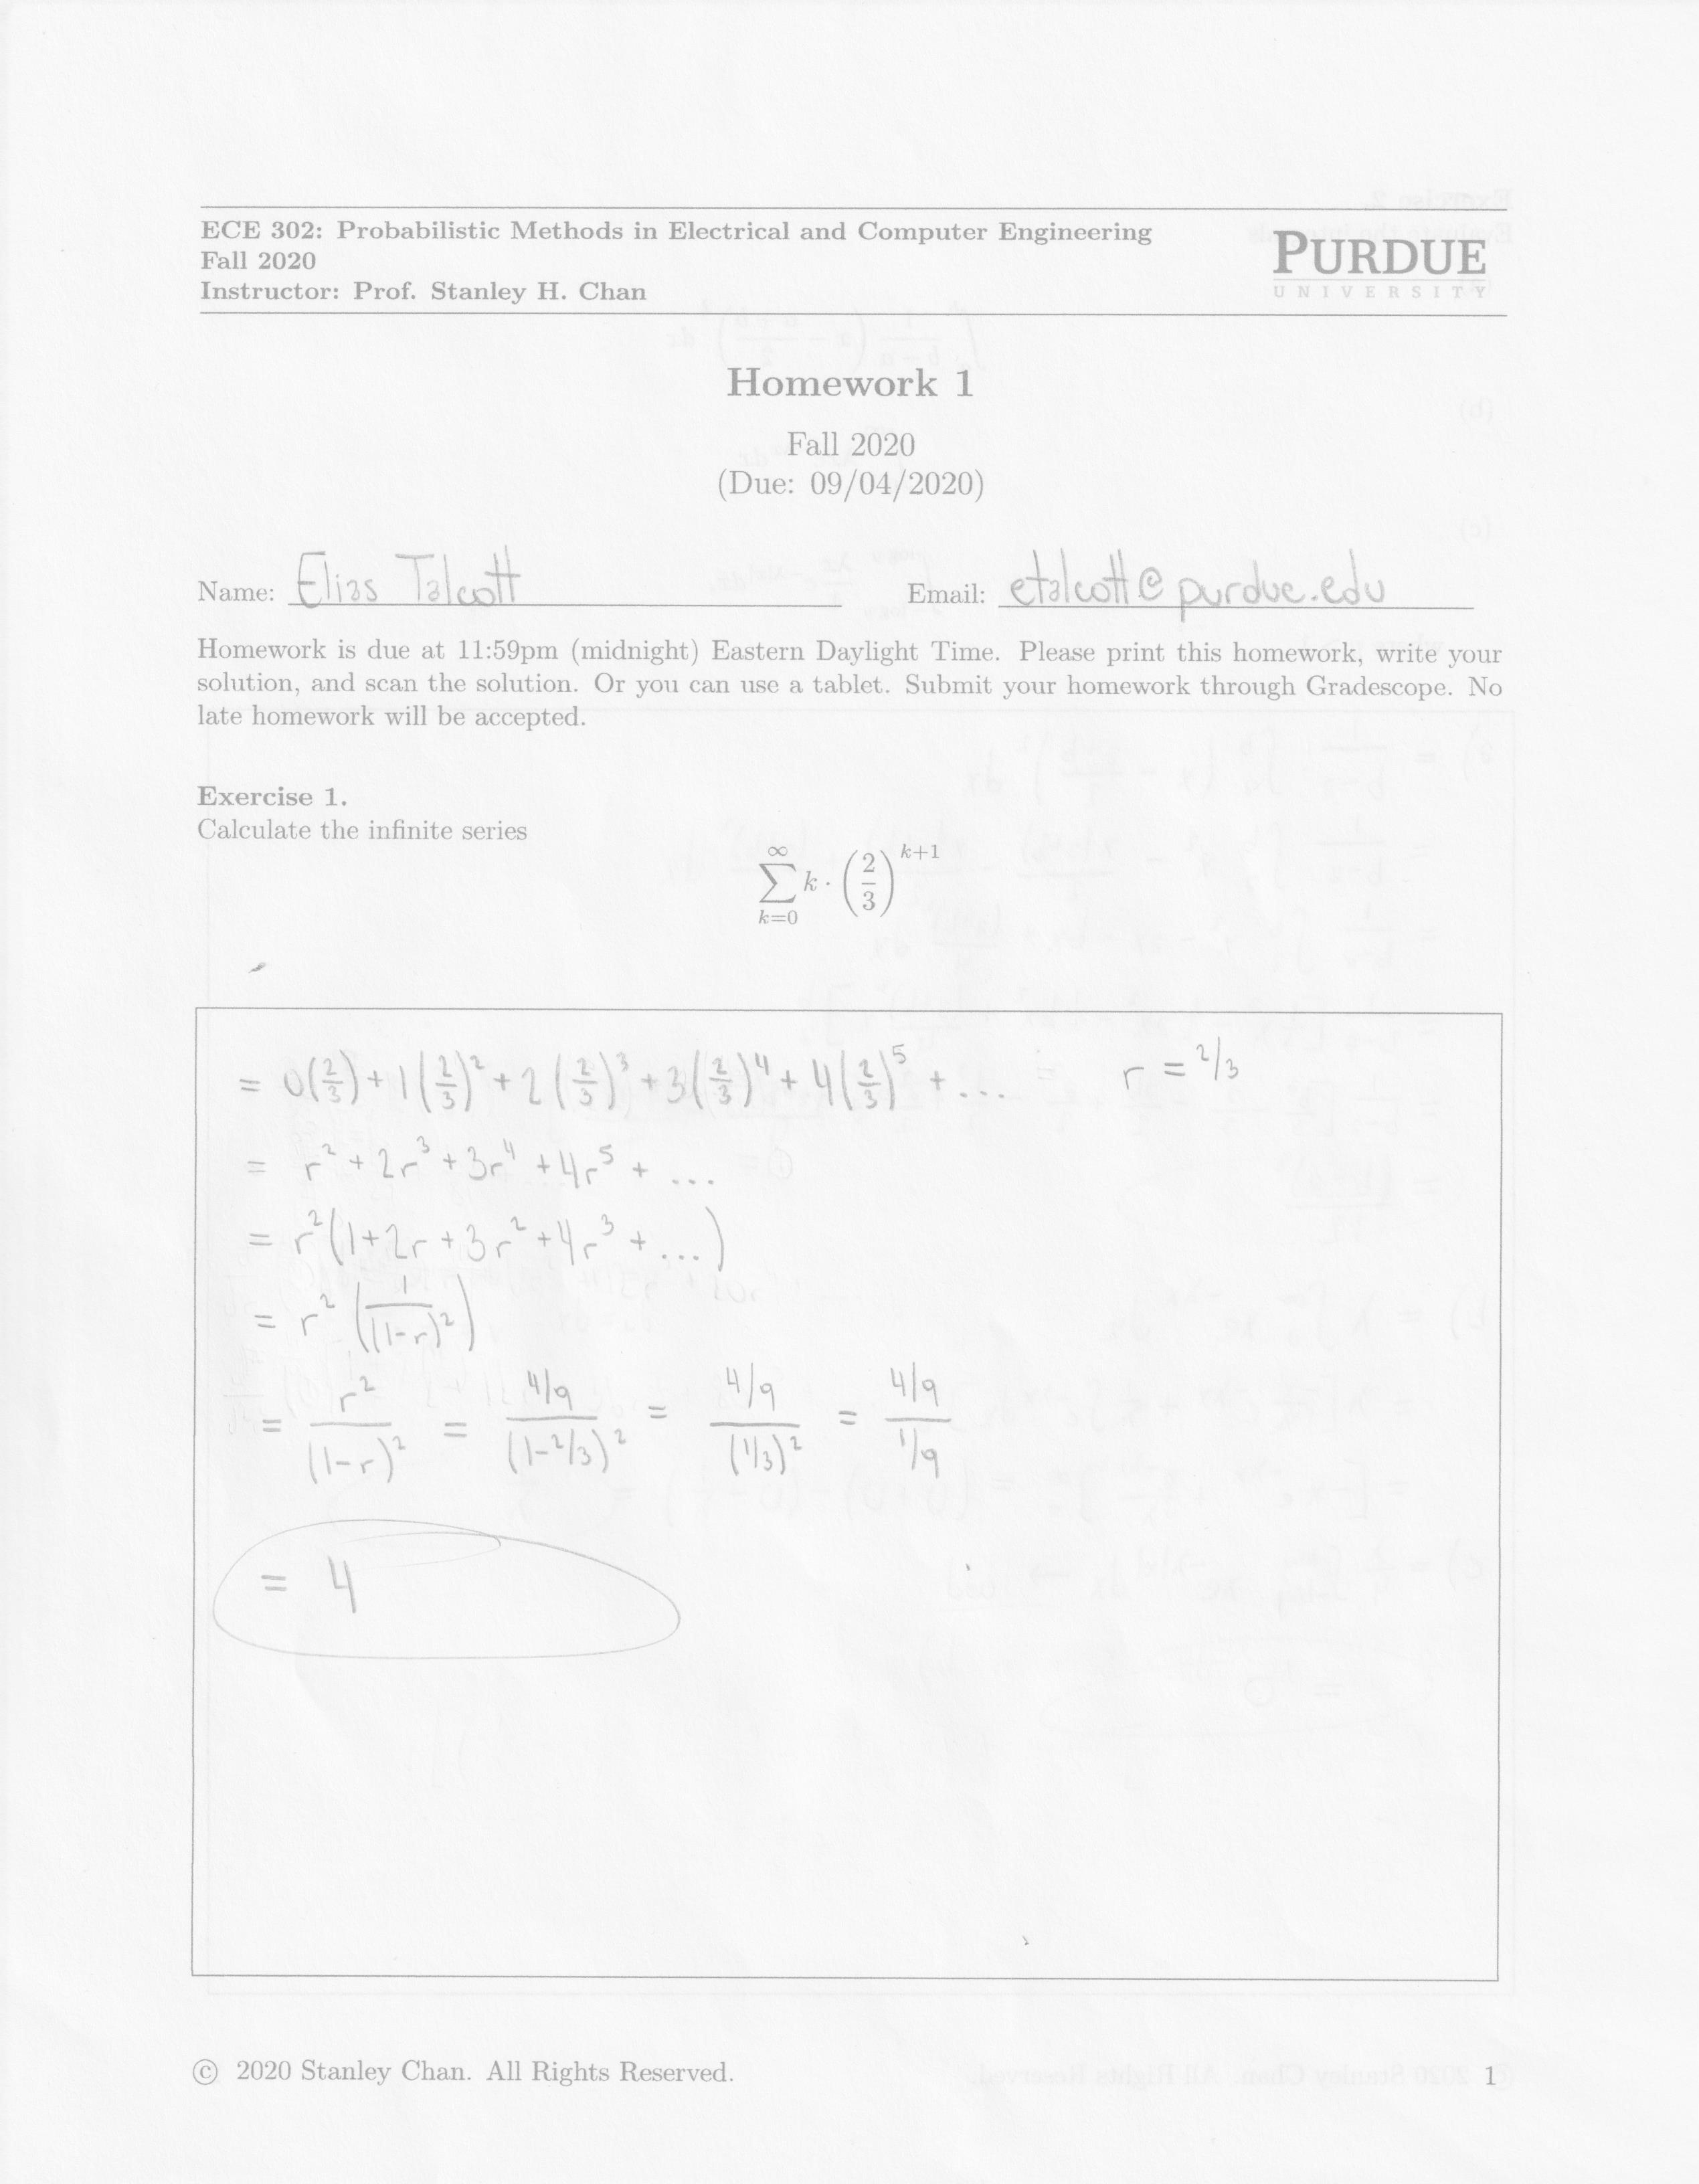 ECE 302: Probabilistic Methods in Electrical and Computer Engineering
Fall 2020
Instructor: Prof. Stanley H. Chan
PURDUE
UNIVERSITY
Homework 1
Fall 2020
(Due: 09/04/2020)
Name: Elias Talcott Email: etalcott@purdue.edu
Homework is due at 11:59pm (midnight) Eastern Daylight Time. Please print this homework, write your
solution, and scan the solution. Or you can use a tablet. Submit your homework through Gradescope. No
late homework will be accepted.
Exercise 1.
Calculate the infinite series
∑_{k=0}^{∞} k · (2/3)^{k+1}
= 0(2/3) + 1(2/3)² + 2(2/3)³ + 3(2/3)⁴ + 4(2/3)⁵ + ... r = 2/3
= r² + 2r³ + 3r⁴ + 4r⁵ + ...
= r²(1+2r+3r²+4r³+...)
= r² (1/(1-r)²)
= r²/(1-r)² = (4/9)/(1-2/3)² = (4/9)/(1/3)² = (4/9)/(1/9)
= 4
© 2020 Stanley Chan. All Rights Reserved. 1